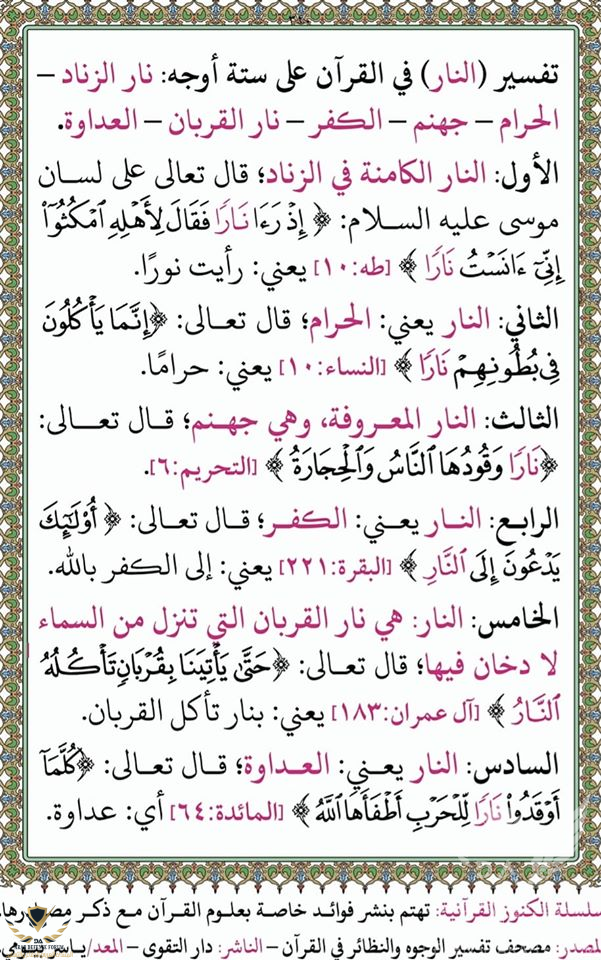 تفسير (النار) في القرآن على ستة أوجه: نار الزناد –
الحرام – جهنم – الكفر – نار القربان – العداوة.
الأول: النار الكامنة في الزناد؛ قال تعالى على لسان
موسى عليه السلام: ﴿ إِذْ رَءَا نَارًا فَقَالَ لِأَهْلِهِ ٱمْكُثُوٓا۟
إِنِّىٓ ءَانَسْتُ نَارًا ﴾ [طه:١٠] يعني: رأيت نورًا.
الثاني: النار يعني: الحرام؛ قال تعالى: ﴿إِنَّمَا يَأْكُلُونَ
فِى بُطُونِهِمْ نَارًا ﴾ [النساء:١٠] يعني: حرامًا.
الثالث: النار المعروفة، وهي جهنم؛ قال تعالى:
﴿نَارًا وَقُودُهَا ٱلنَّاسُ وَٱلْحِجَارَةُ ﴾ [التحريم:٦].
الرابع: النار يعني: الكفر؛ قال تعالى: ﴿ أُو۟لَٰٓئِكَ
يَدْعُونَ إِلَى ٱلنَّارِ ﴾ [البقرة:٢٢١] يعني: إلى الكفر بالله.
الخامس: النار: هي نار القربان التي تنزل من السماء
لا دخان فيها؛ قال تعالى: ﴿حَتَّىٰ يَأْتِيَنَا بِقُرْبَانٍ تَأْكُلُهُ
ٱلنَّارُ ﴾ [آل عمران:١٨٣] يعني: بنار تأكل القربان.
السادس: النار يعني: العداوة؛ قال تعالى: ﴿كُلَّمَآ
أَوْقَدُوا۟ نَارًا لِّلْحَرْبِ أَطْفَأَهَا ٱللَّهُ ﴾ [المائدة:٦٤] أي: عداوة.
سلسلة الكنوز القرآنية: تهتم بنشر فوائد خاصة بعلوم القرآن مع ذكر مصادرها.
المصدر: مصحف تفسير الوجوه والنظائر في القرآن – الناشر: دار التقوى – المعد/ياسر